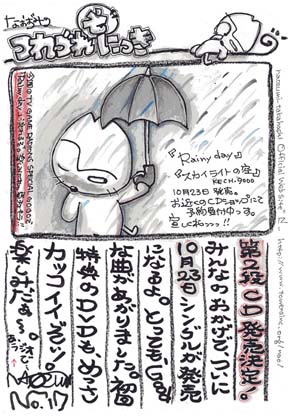 なおずみの
つれづれにっき
『Rainy day』
『スカイライトの窓』
KECH-9000
10月23日発売。
お近くのCDショップにて
予約受付中っす。
宜しくねっっ!!
第2段CD発売決定。
みんなのおかげで、ついに
10月23日シングルが発売
になるよ。とってもいい
な曲があがりました。初回
特典のDVDも、めっさ
カッコイイぞッ！
楽しみだぁ〜。
NAOZUMI
No.17